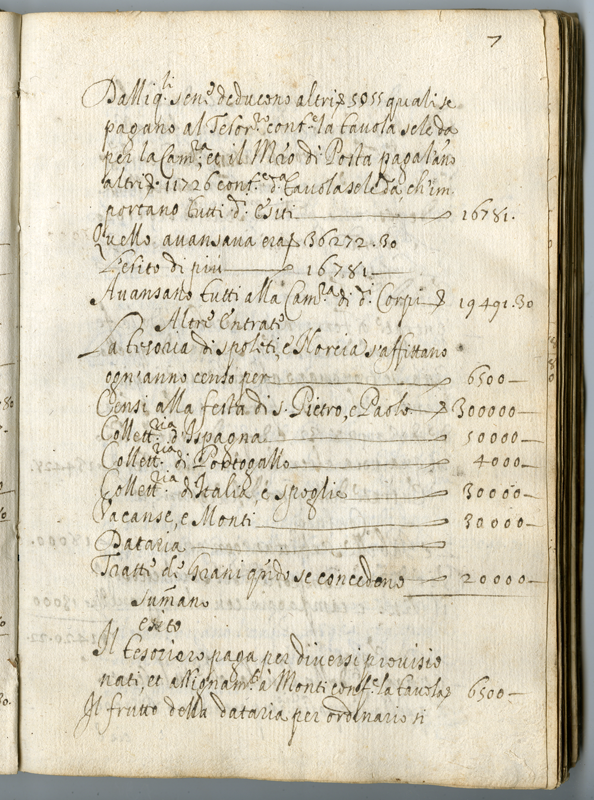 7
Dalli q.li se ne deducono altri ▽ 5055 quali se
pagano al Tesor.ro conf.e la tavola se le dà
per la Cam.ra et il Mro di Posta paga l'an.o
altri ▽ 11726 conf.e d.a tavola se le dà, ch'im
portano tutti d.i Esiti 16781.
Quello avansava era ▽ 36272.30
L'esito di più 16781
Avansano tutti alla Cam.ra di d.i Corpi ▽ 19491.30
Altre Entrate
La tesoria di Spoleti, e Norcia s'affittano
ogn'anno censo per 6500
Censi alla festa di S. Pietro, e Paolo ▽ 300000
Collett.ria d'Ispagna 50000
Collett.ria di Portogallo 4000
Collett.ria d'Italia e spoglie 30000
Vacanse, e Monti 30000
Dataria
Tratte de Grani q.ndo se concedono 20000
sum̃ano
esito
Il tesoriero paga per diversi provisio
nati, et assignam.ti a Monti conf.e la tavola ▽ 6500
Il frutto della dataria per ordinario si